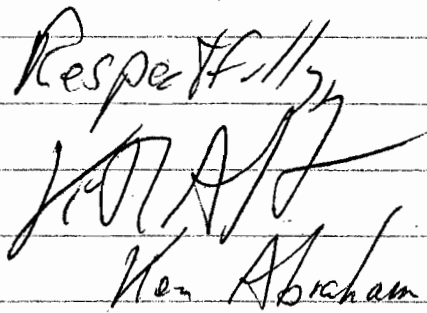 Respectfully,
Ken Abraham